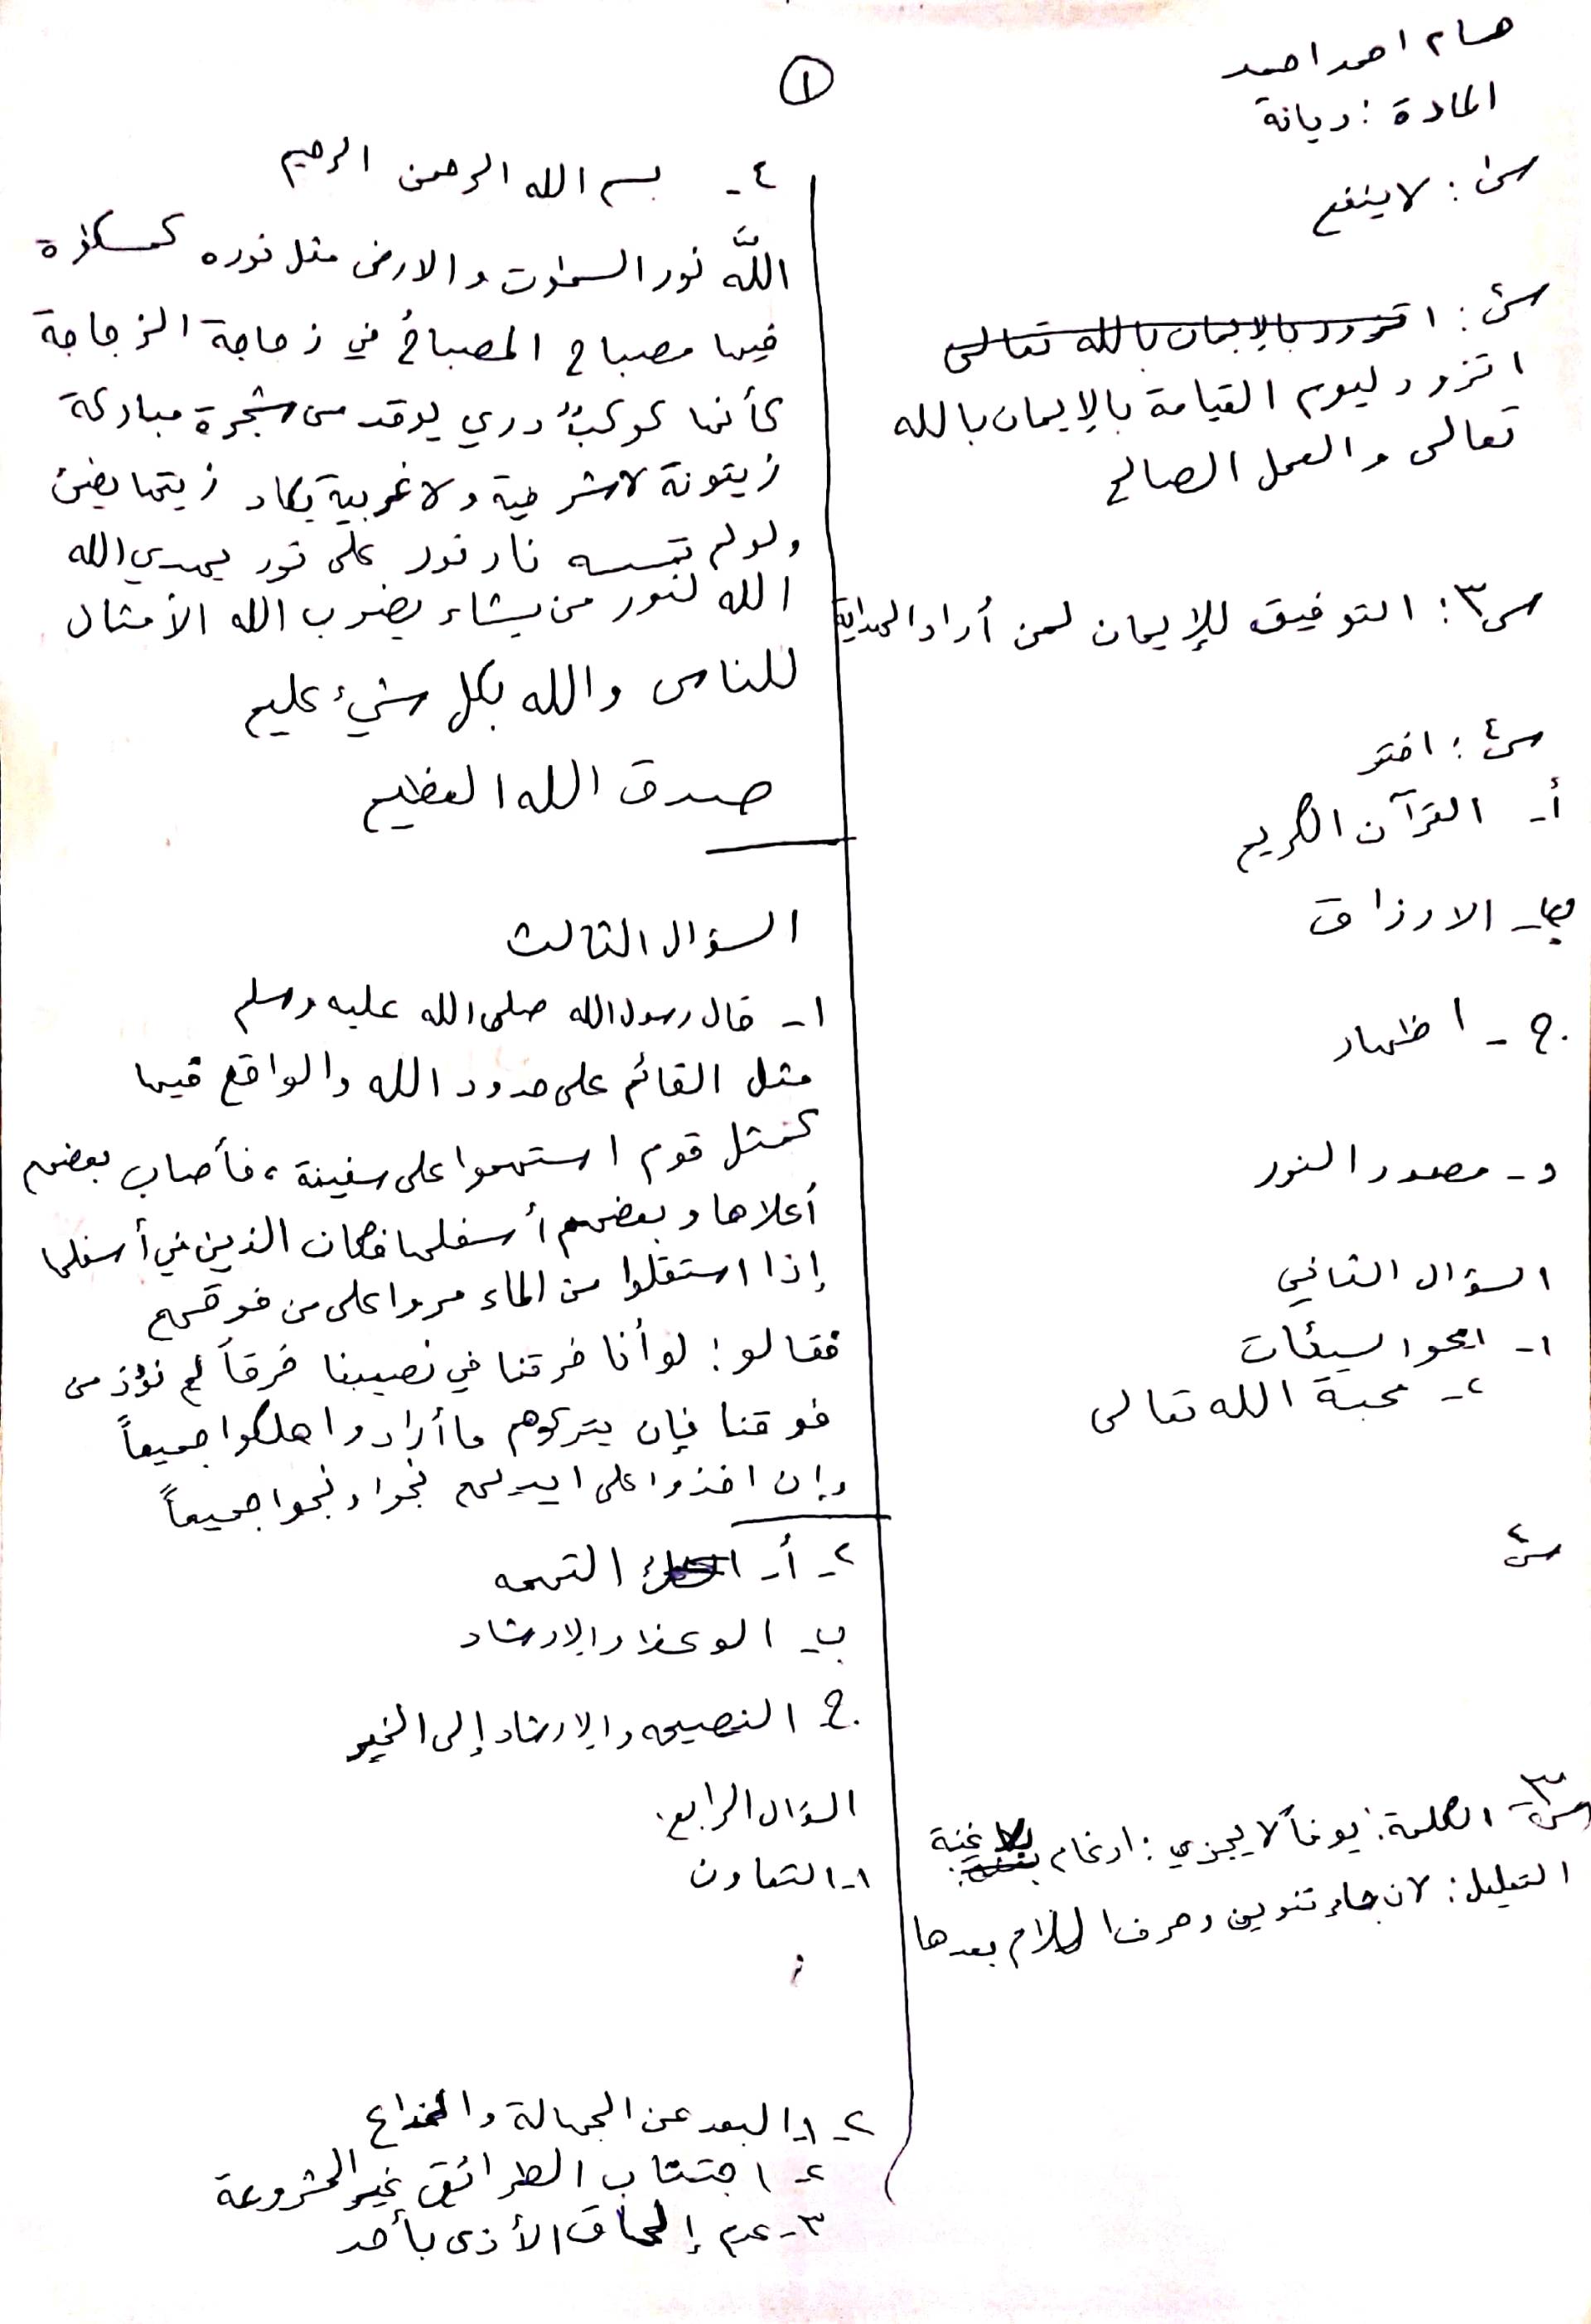 ①
حسام احمد احمد
المادة : ديانة
س١ : لا ينفع
س٢ : اتزود بالإيمان بالله تعالى
اتزود ليوم القيامة بالإيمان بالله
تعالى والعمل الصالح
س٣ : التوفيق للإيمان لمن أراد الهداية
س٤ : اختر
أ- القرآن الكريم
ب- الارزاق
ج - اظهار
د - مصدر النور
السؤال الثاني
١- امحوا لسيئات
٢- محبة الله تعالى
س٤
س٣- الكلمة : يوماً لا يجزي : ادغام بلا غنة
التعليل : لان جاء تنوين وحرف اللام بعدها
٤- بسم الله الرحمن الرحيم
اللَّه نور السموات والارض مثل نوره كمشكوة
فيها مصباح المصباحُ في زجاجة الزجاجة
كأنها كوكبٌ دري يوقد من شجرة مباركة
زيتونة لا شرقية ولا غربية يكاد زيتها يضئ
ولو لم تمسسه نار نور على نور يهدي الله
الله لنور من يشاء يضرب الله الأمثال
للناس والله بكل شيء عليم
صدق الله العظيم
السؤال الثالث
١- قال رسول الله صلى الله عليه وسلم
مثل القائم على حدود الله والواقع فيها
كمثل قوم استهموا على سفينة ، فأصاب بعضهم
أعلاها وبعضهم أسفلها فكان الذين في أسفلها
إذا استقلوا من الماء مروا على من فوقهم
فقالو : لو أنا خرقنا في نصيبنا خرقاً لم نؤذ من
فوقنا فإن يتركوهم ما أرادوا هلكوا جميعاً
وإن اخذوا على ايديهم نجوا ونجوا جميعاً
٢- أ- التهمه
ب- الوعظ والارشاد
ج- النصيحه والارشاد إلى الخير
السؤال الرابع :
١- التعاون
٢- ١- البعد عن الجهالة والخداع
٢- اجتناب الطرائق غير المشروعة
٣- عدم إلحاق الأذى بأحد